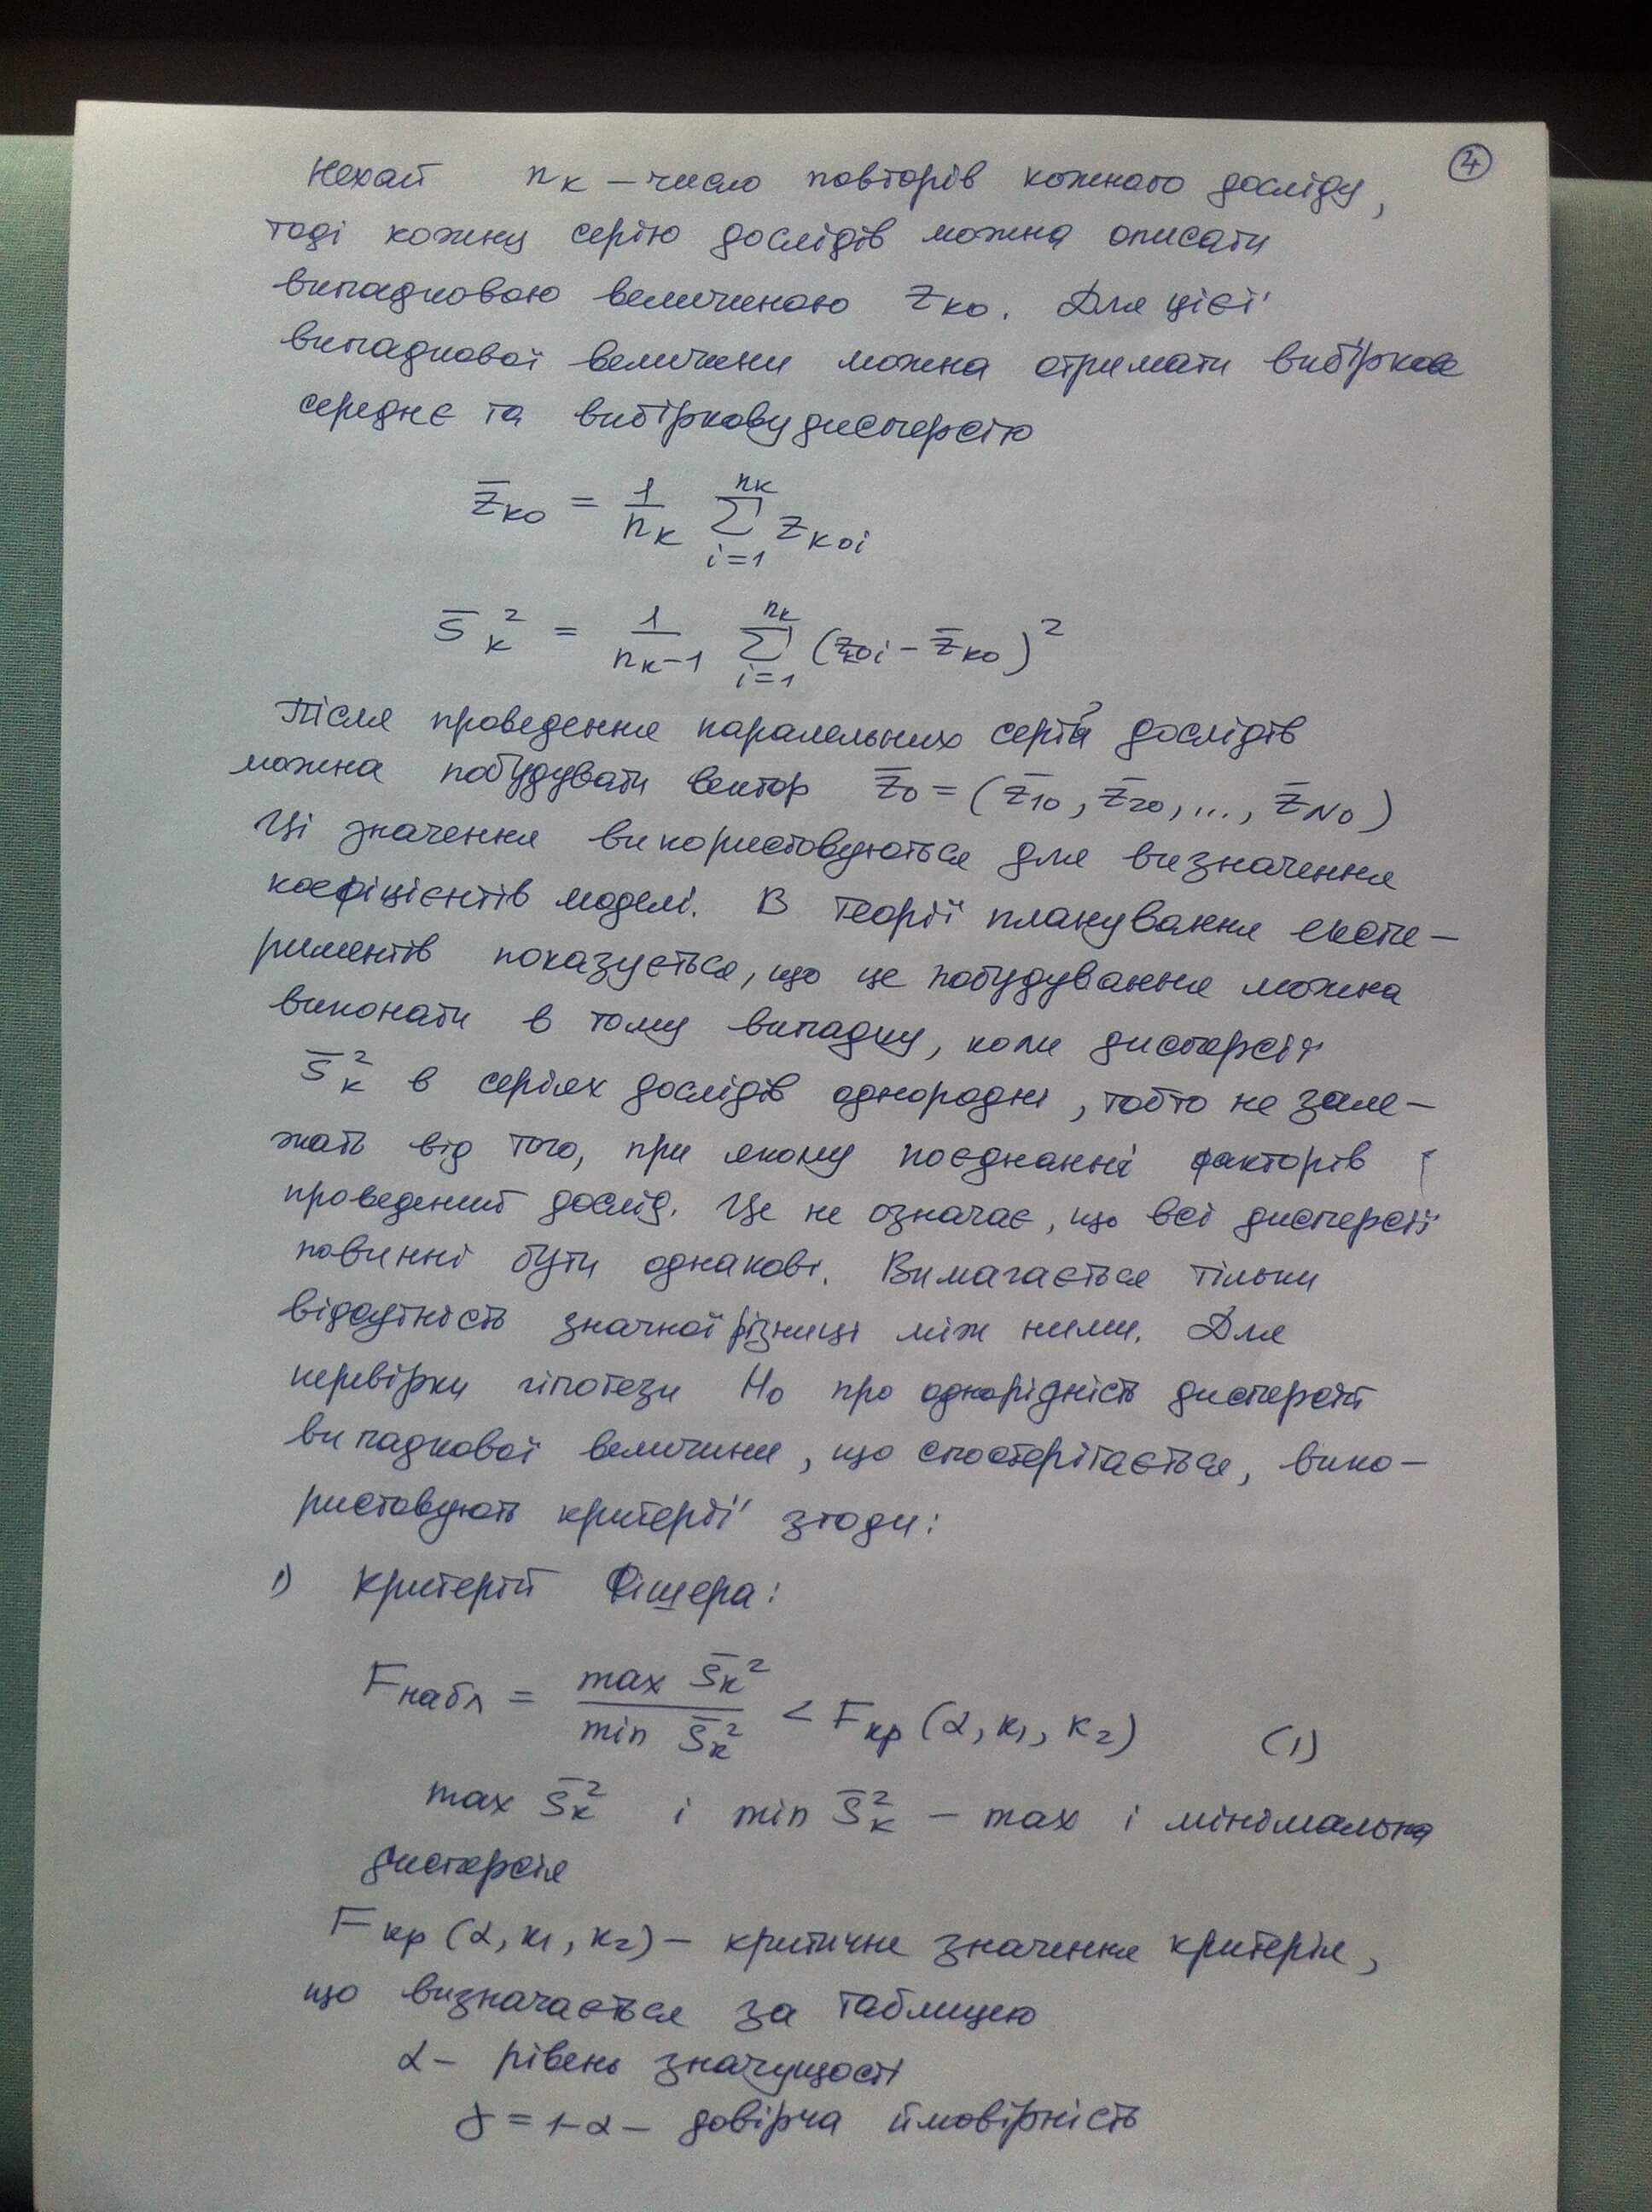 ④
Нехай n_k – число повторів кожного досліду,
тоді кожну серію дослідів можна описати
випадковою величиною z_k0. Для цієї
випадкової величини можна отримати вибіркове
середнє та вибіркову дисперсію
z̄_k0 = 1/n_k ∑_{i=1}^{n_k} z_k0i
S̄_k² = 1/(n_k-1) ∑_{i=1}^{n_k} (z_k0i – z̄_k0)²
Після проведення паралельних серій дослідів
можна побудувати вектор z̄_0 = (z̄_10, z̄_20, ..., z̄_N0)
Ці значення використовуються для визначення
коефіцієнтів моделі. В теорії планування експе-
риментів показується, що це побудування можна
виконати в тому випадку, коли дисперсії
S̄_k² в серіях дослідів однорідні, тобто не зале-
жать від того, при якому поєднанні факторів
проведений дослід. Це не означає, що всі дисперсії
повинні бути однакові. Вимагається тільки
відсутність значної різниці між ними. Для
перевірки гіпотези H_0 про однорідність дисперсій
випадкової величини, що спостерігається, вико-
ристовують критерії згоди:
1) Критерій Фішера:
F_набл = max S̄_k² / min S̄_k² < F_кр (α, k_1, k_2) (1)
max S̄_k² і min S̄_k² – max і мінімальна
дисперсія
F_кр (α, k_1, k_2) – критичне значення критерія,
що визначається за таблицею
α – рівень значущості
γ = 1-α – довірча ймовірність